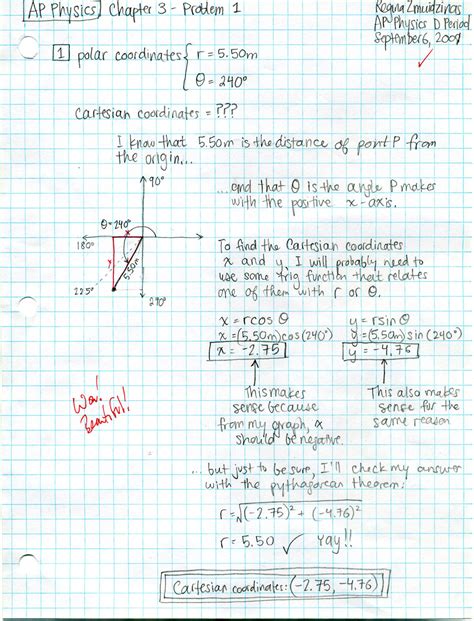 AP Physics Chapter 3 - Problem 1
AP Physics D Period
September 6, 2007
1 polar coordinates { r = 5.50m
θ = 240°
Cartesian coordinates = ???
I know that 5.50m is the distance of point P from
the origin...
90°
...and that θ is the angle P makes
with the positive x-axis.
θ=240°
180°
5.50m
225°
270°
To find the Cartesian coordinates
x and y, I will probably need to
use some trig function that relates
one of them with r or θ.
x = rcos θ
x = (5.50m)cos(240°)
x = -2.75
y = rsin θ
y = (5.50m) sin (240°)
y = -4.76
This makes
sense because
from my graph, x
should be negative.
This also makes
sense for the
same reason
Wow!
Beautiful!
... but just to be sure, I'll check my answer
with the pythagorean theorem:
r = √(-2.75)² + (-4.76)²
r = 5.50 ✓ Yay!!
Cartesian coordinates: (-2.75, -4.76)